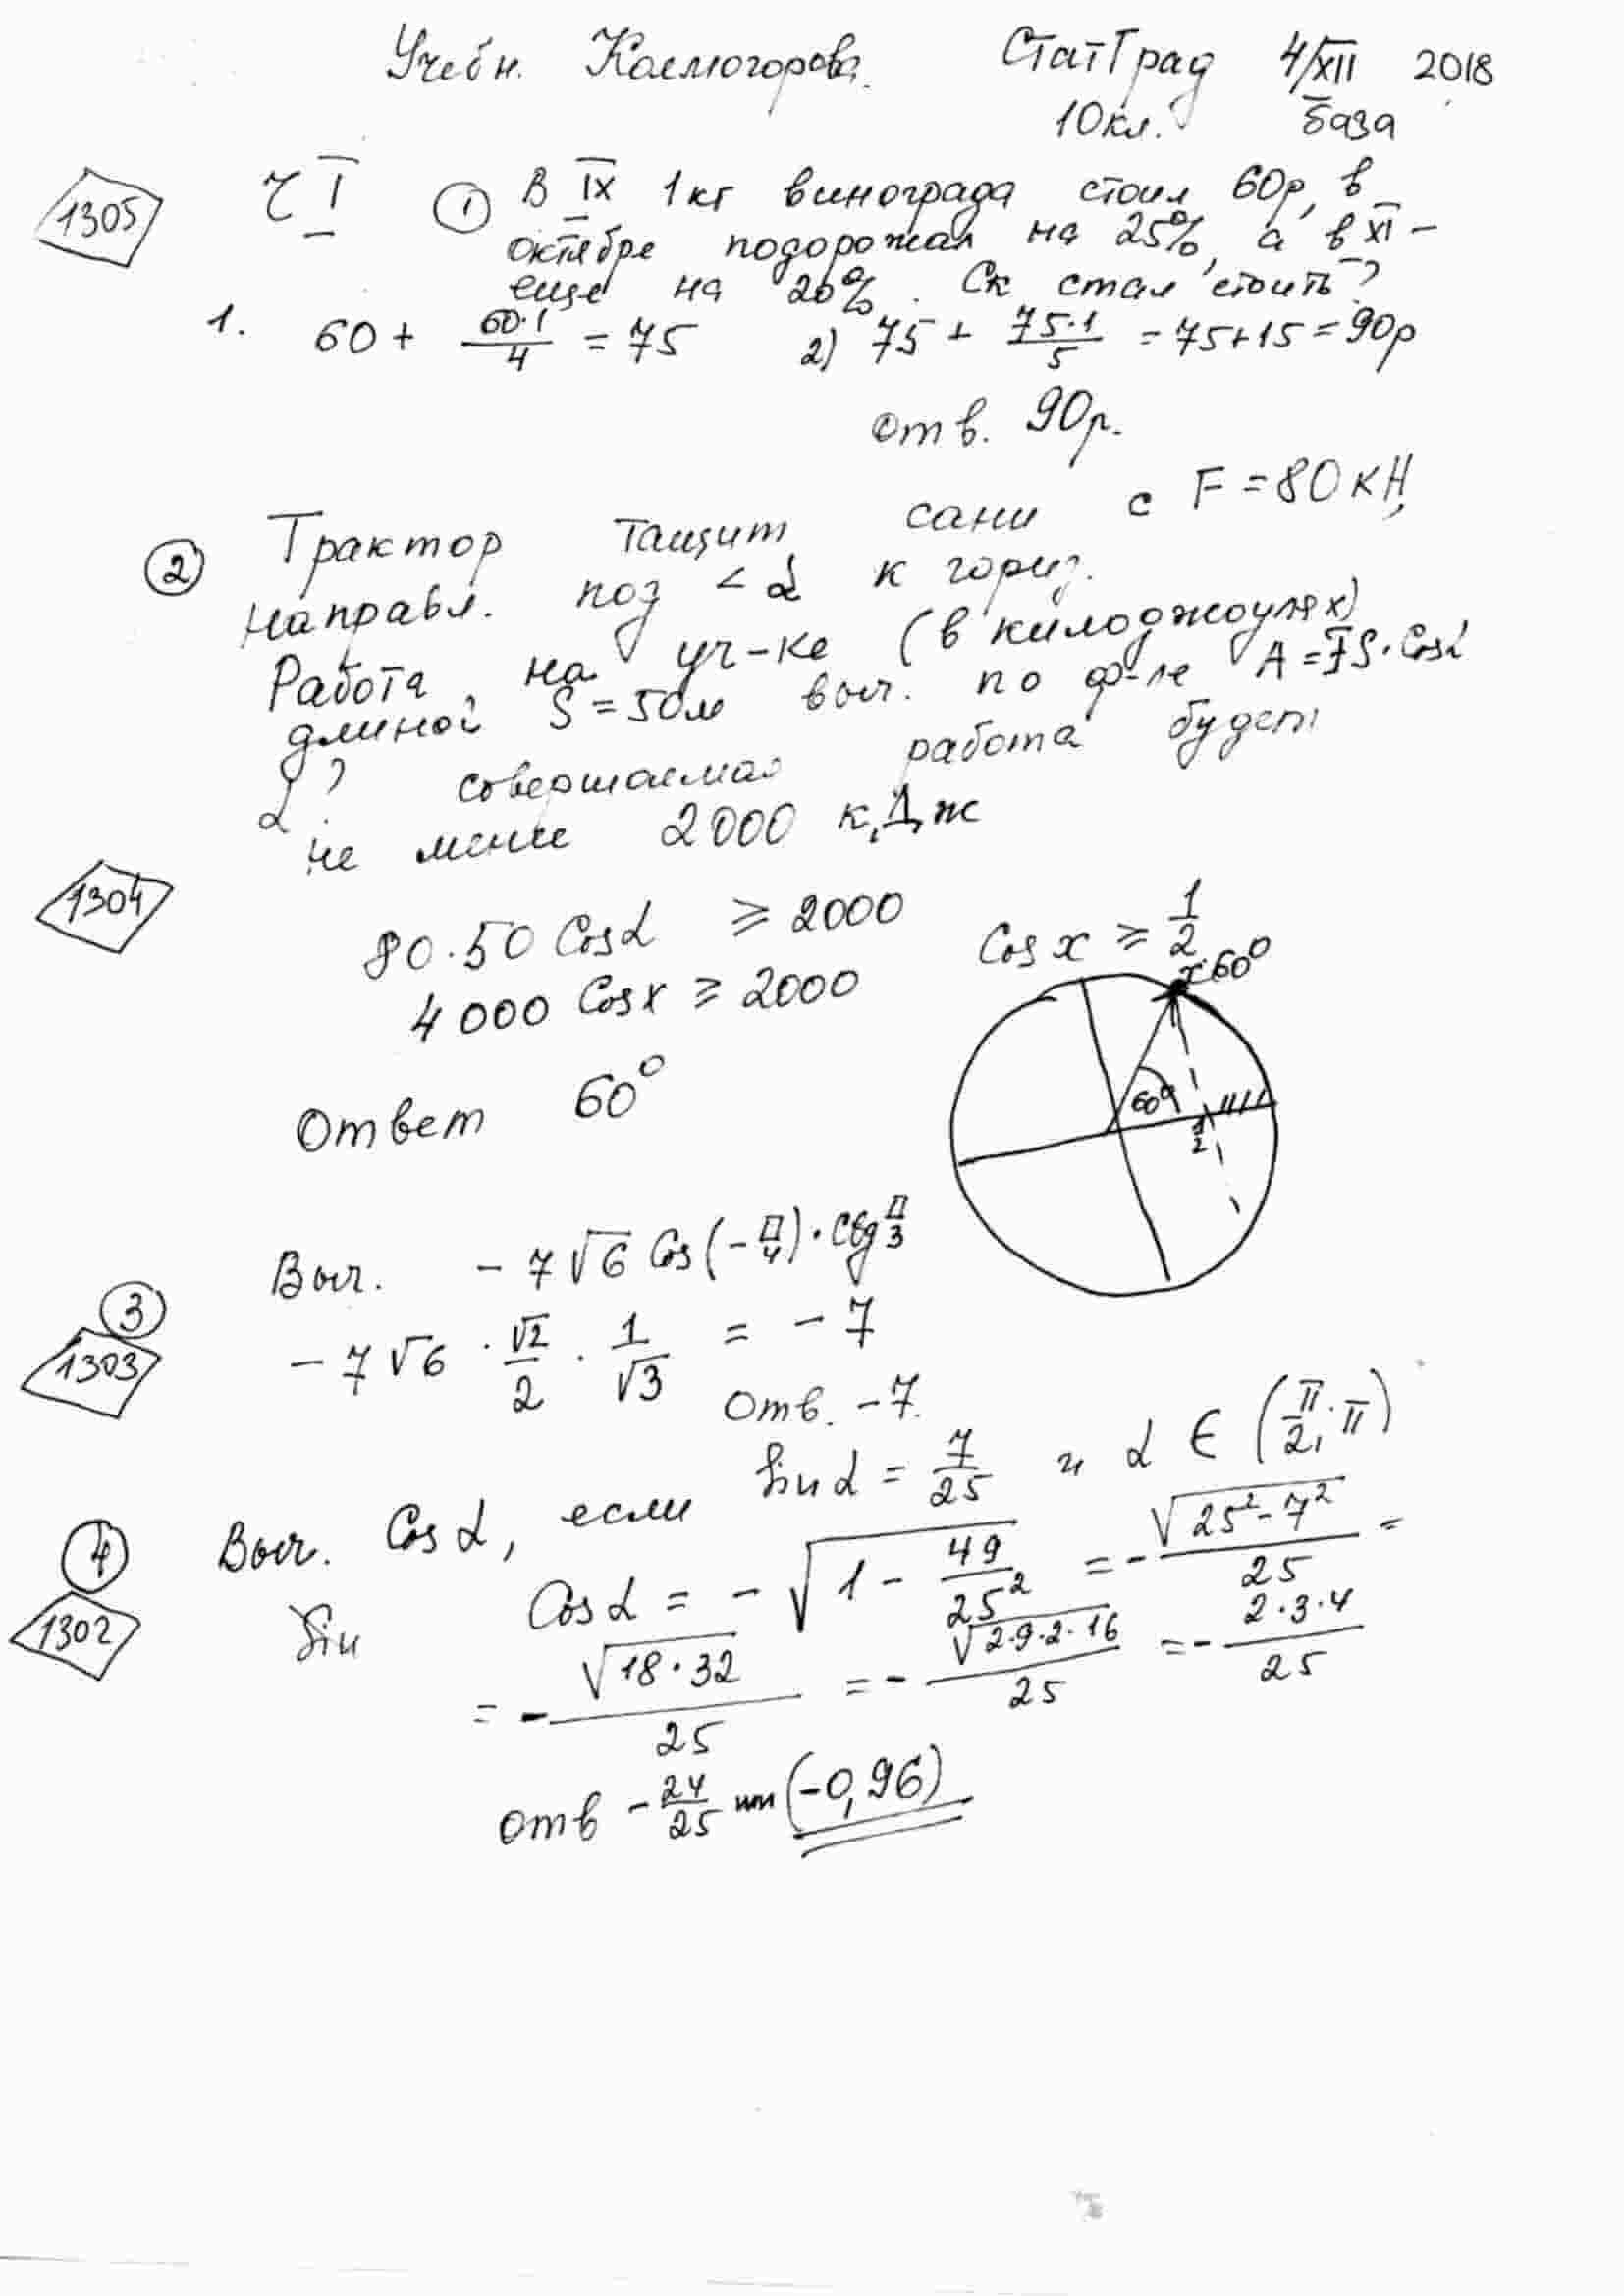 Учебн. Колмогорова. СтатГрад 4/XII 2018
10кл. база
1305 Ч I ① В IX 1кг винограда стоил 60р, в
октябре подорожал на 25%, а в XI –
еще на 20%. Ск стал стоить?
1. 60 + 60·1/4 = 75 2) 75 + 75·1/5 = 75+15 = 90р
отв. 90р.
② Трактор тащит сани с F = 80кН,
направл. под < α к гориз.
Работа на уч-ке (в килоджоулях)
длиной S = 50м выч. по ф-ле A = FS·Cosα
α? совершаемая работа будет
не менее 2000 кДж
1304
80·50 Cosα ≥ 2000 Cos x ≥ 1/2
4000 Cosx ≥ 2000 x·60°
Ответ 60° 60° 1/2
③ Выч. - 7√6 Cos(-π/4)·ctg π/3
1303 - 7√6 · √2/2 · 1/√3 = - 7
Отв. -7.
④ Выч. Cosα, если Sinα = 7/25 и α ∈ (π/2, π)
1302 Sin Cosα = - √(1 - 49/25²) = - √(25²-7²)/25 =
= - √(18·32)/25 = - √(2·9·2·16)/25 = - 2·3·4/25
отв - 24/25 или (-0,96)